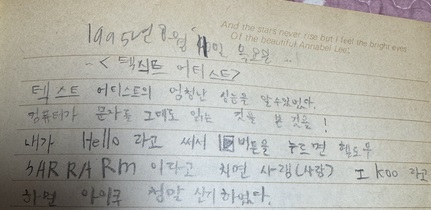 And the stars never rise but I feel the bright eyes
Of the beautiful Annabel Lee;
1995년 8월 일 목요일
<텍식트 어티스트>
텍스트 어디스트의 엄청난 성능을 알수있었다.
컴퓨터가 문자를 그대로 읽는 것을 본 것을!
내가 Hello 라고 써서 버튼을 누르면 헬로우
SAR RA Rm 이다고 치면 사람(사람) I KOO 라고
하면 아이쿠 정말 신기하였다.